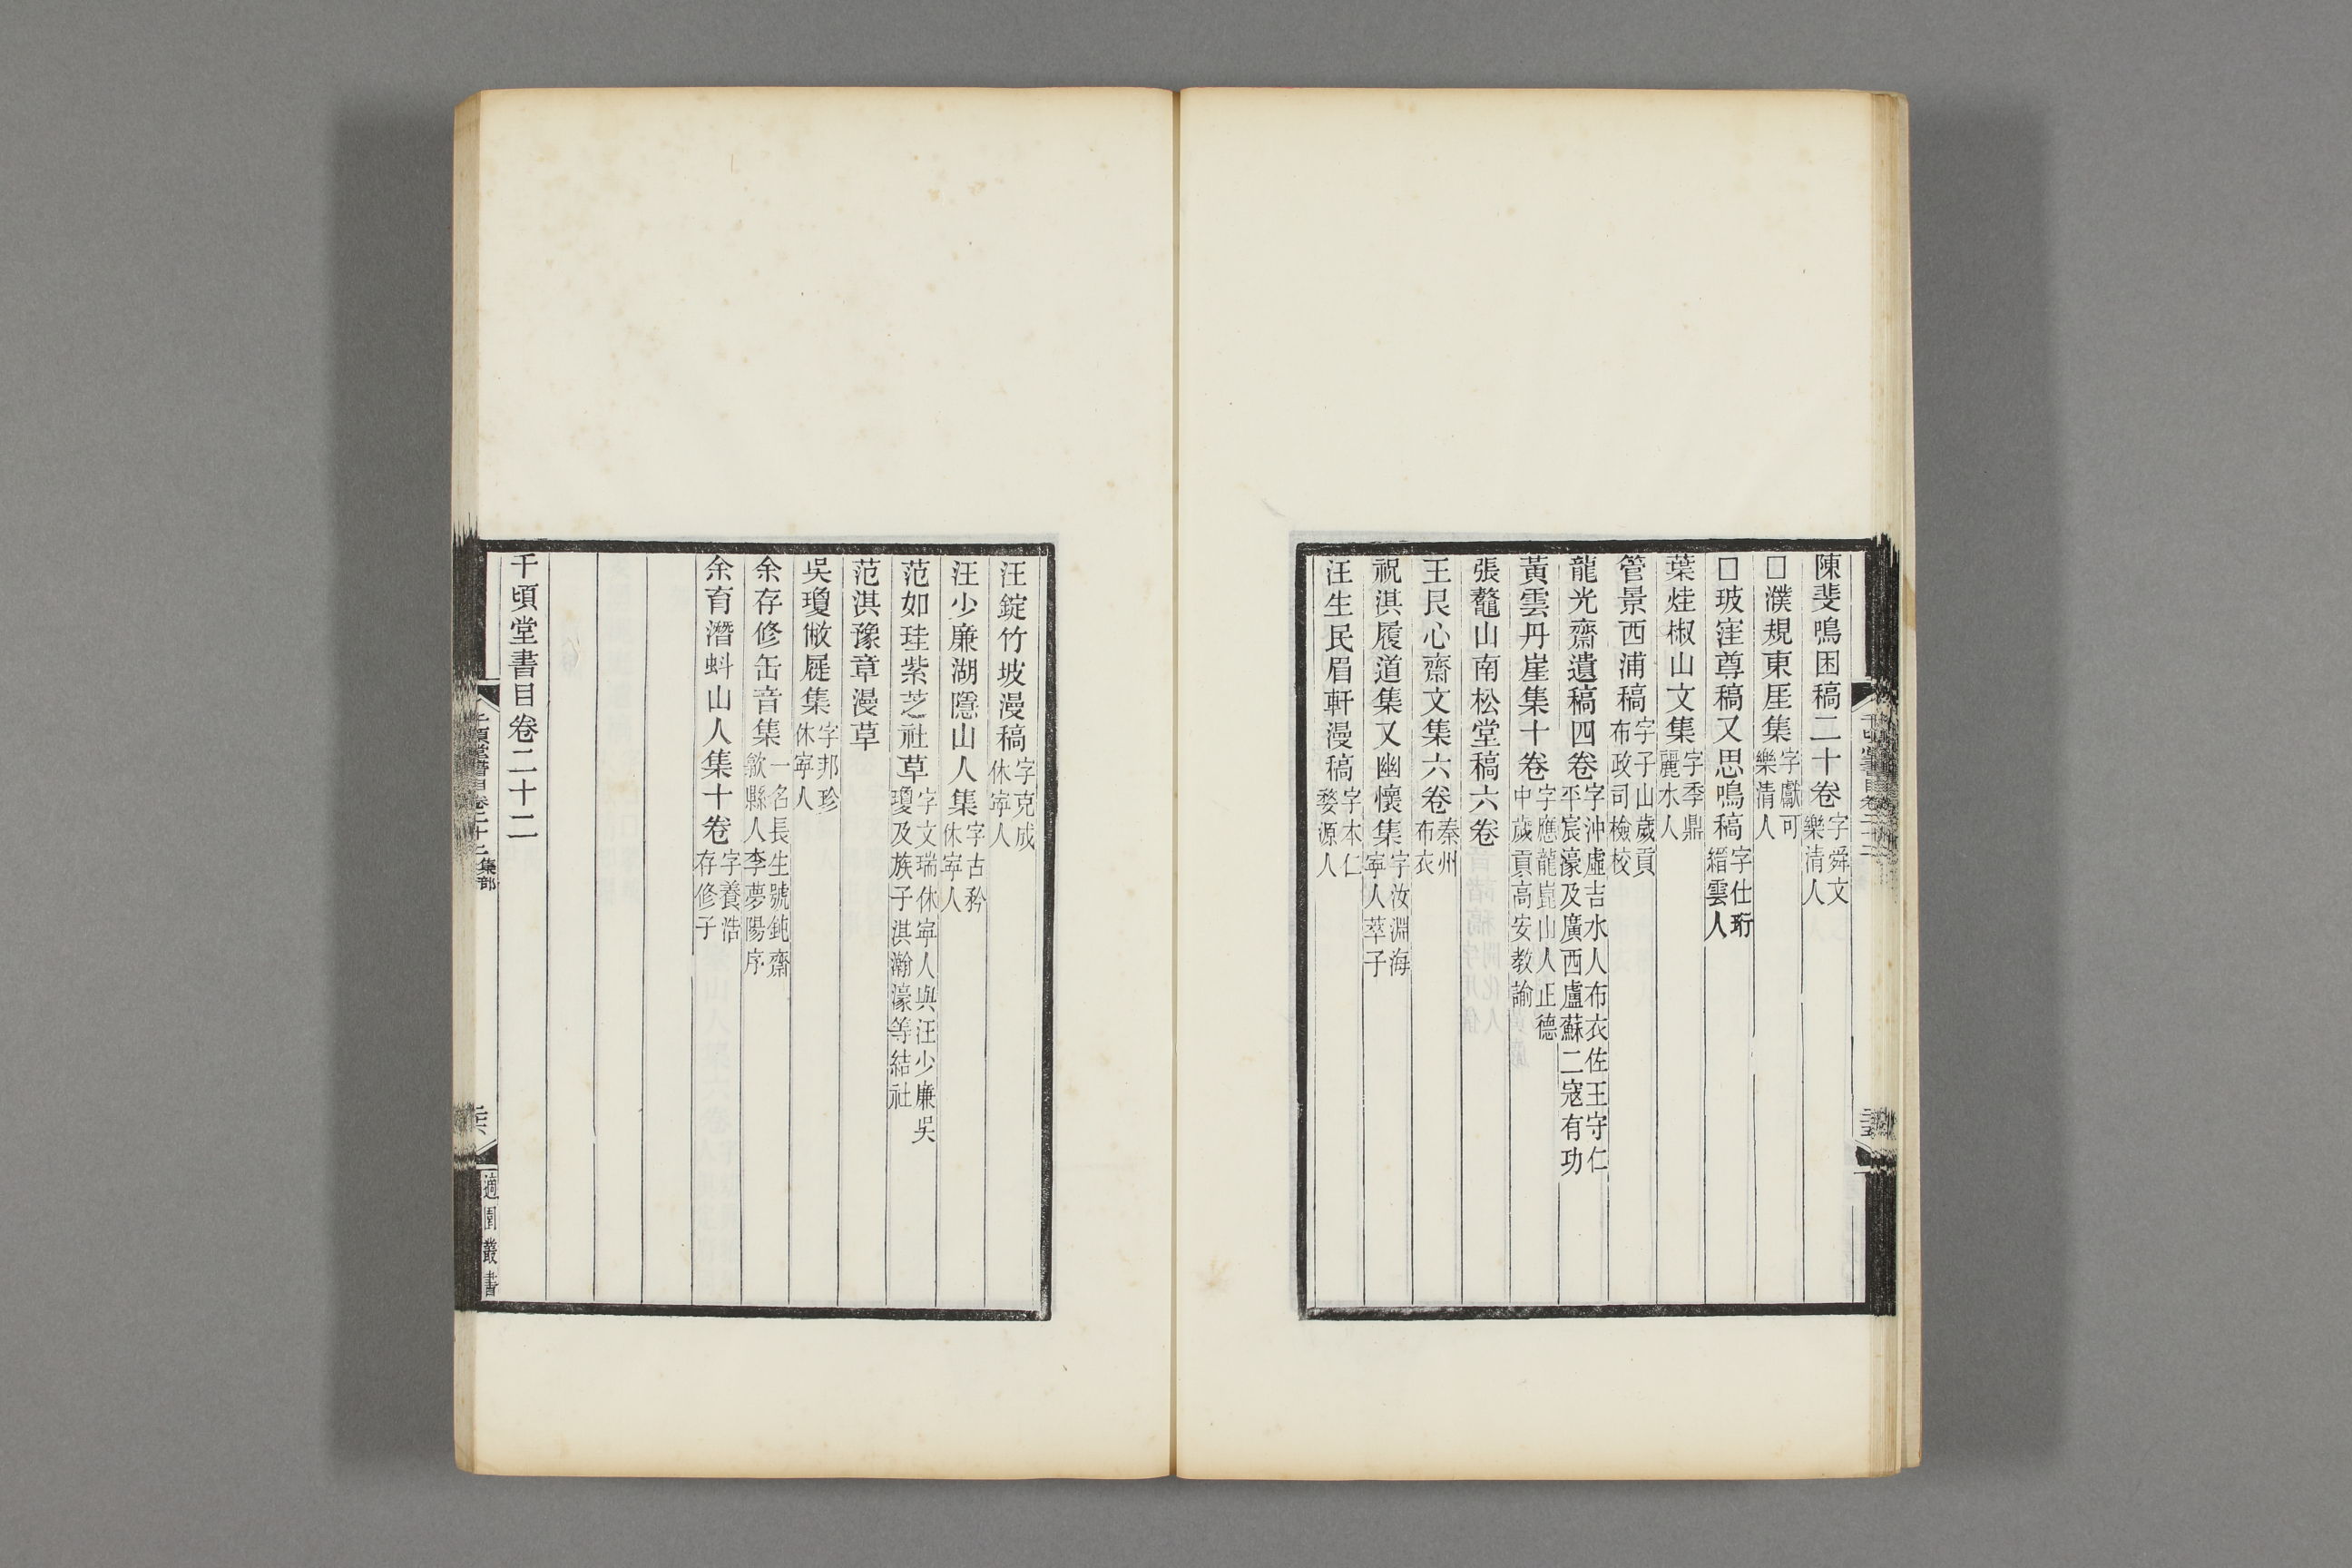 陳斐鳴困稿二十卷字舜文樂清人
□濮規東厓集字獻可樂清人
□玻窪尊稿又思鳴稿字仕珩縉雲人
葉烓椒山文集字季鼎麗水人
管景西浦稿字子山歲貢布政司檢校
龍光齋遺稿四卷字沖虛吉水人布衣佐王守仁平宸濠及廣西盧蘇二寇有功
黃雲丹崖集十卷字應龍崑山人正德中歲貢高安教諭
張鼇山南松堂稿六卷
王艮心齋文集六卷秦州布衣
祝淇履道集又幽懷集字汝淵海寧人萃子
汪生民眉軒漫稿字本仁婺源人
汪錠竹坡漫稿字克成休寧人
汪少廉湖隱山人集字古矜休寧人
范如珪紫芝社草字文瑞休寧人與汪少廉吳瓊及族子淇瀚濠等結社
范淇豫章漫草
吳瓊敝屣集字邦珍休寧人
余存修缶音集一名長生號鈍齋歙縣人李夢陽序
余育潛蚪山人集十卷字養浩存修子
千頃堂書目卷二十二
千頃堂書目卷二十二集部
適園叢書